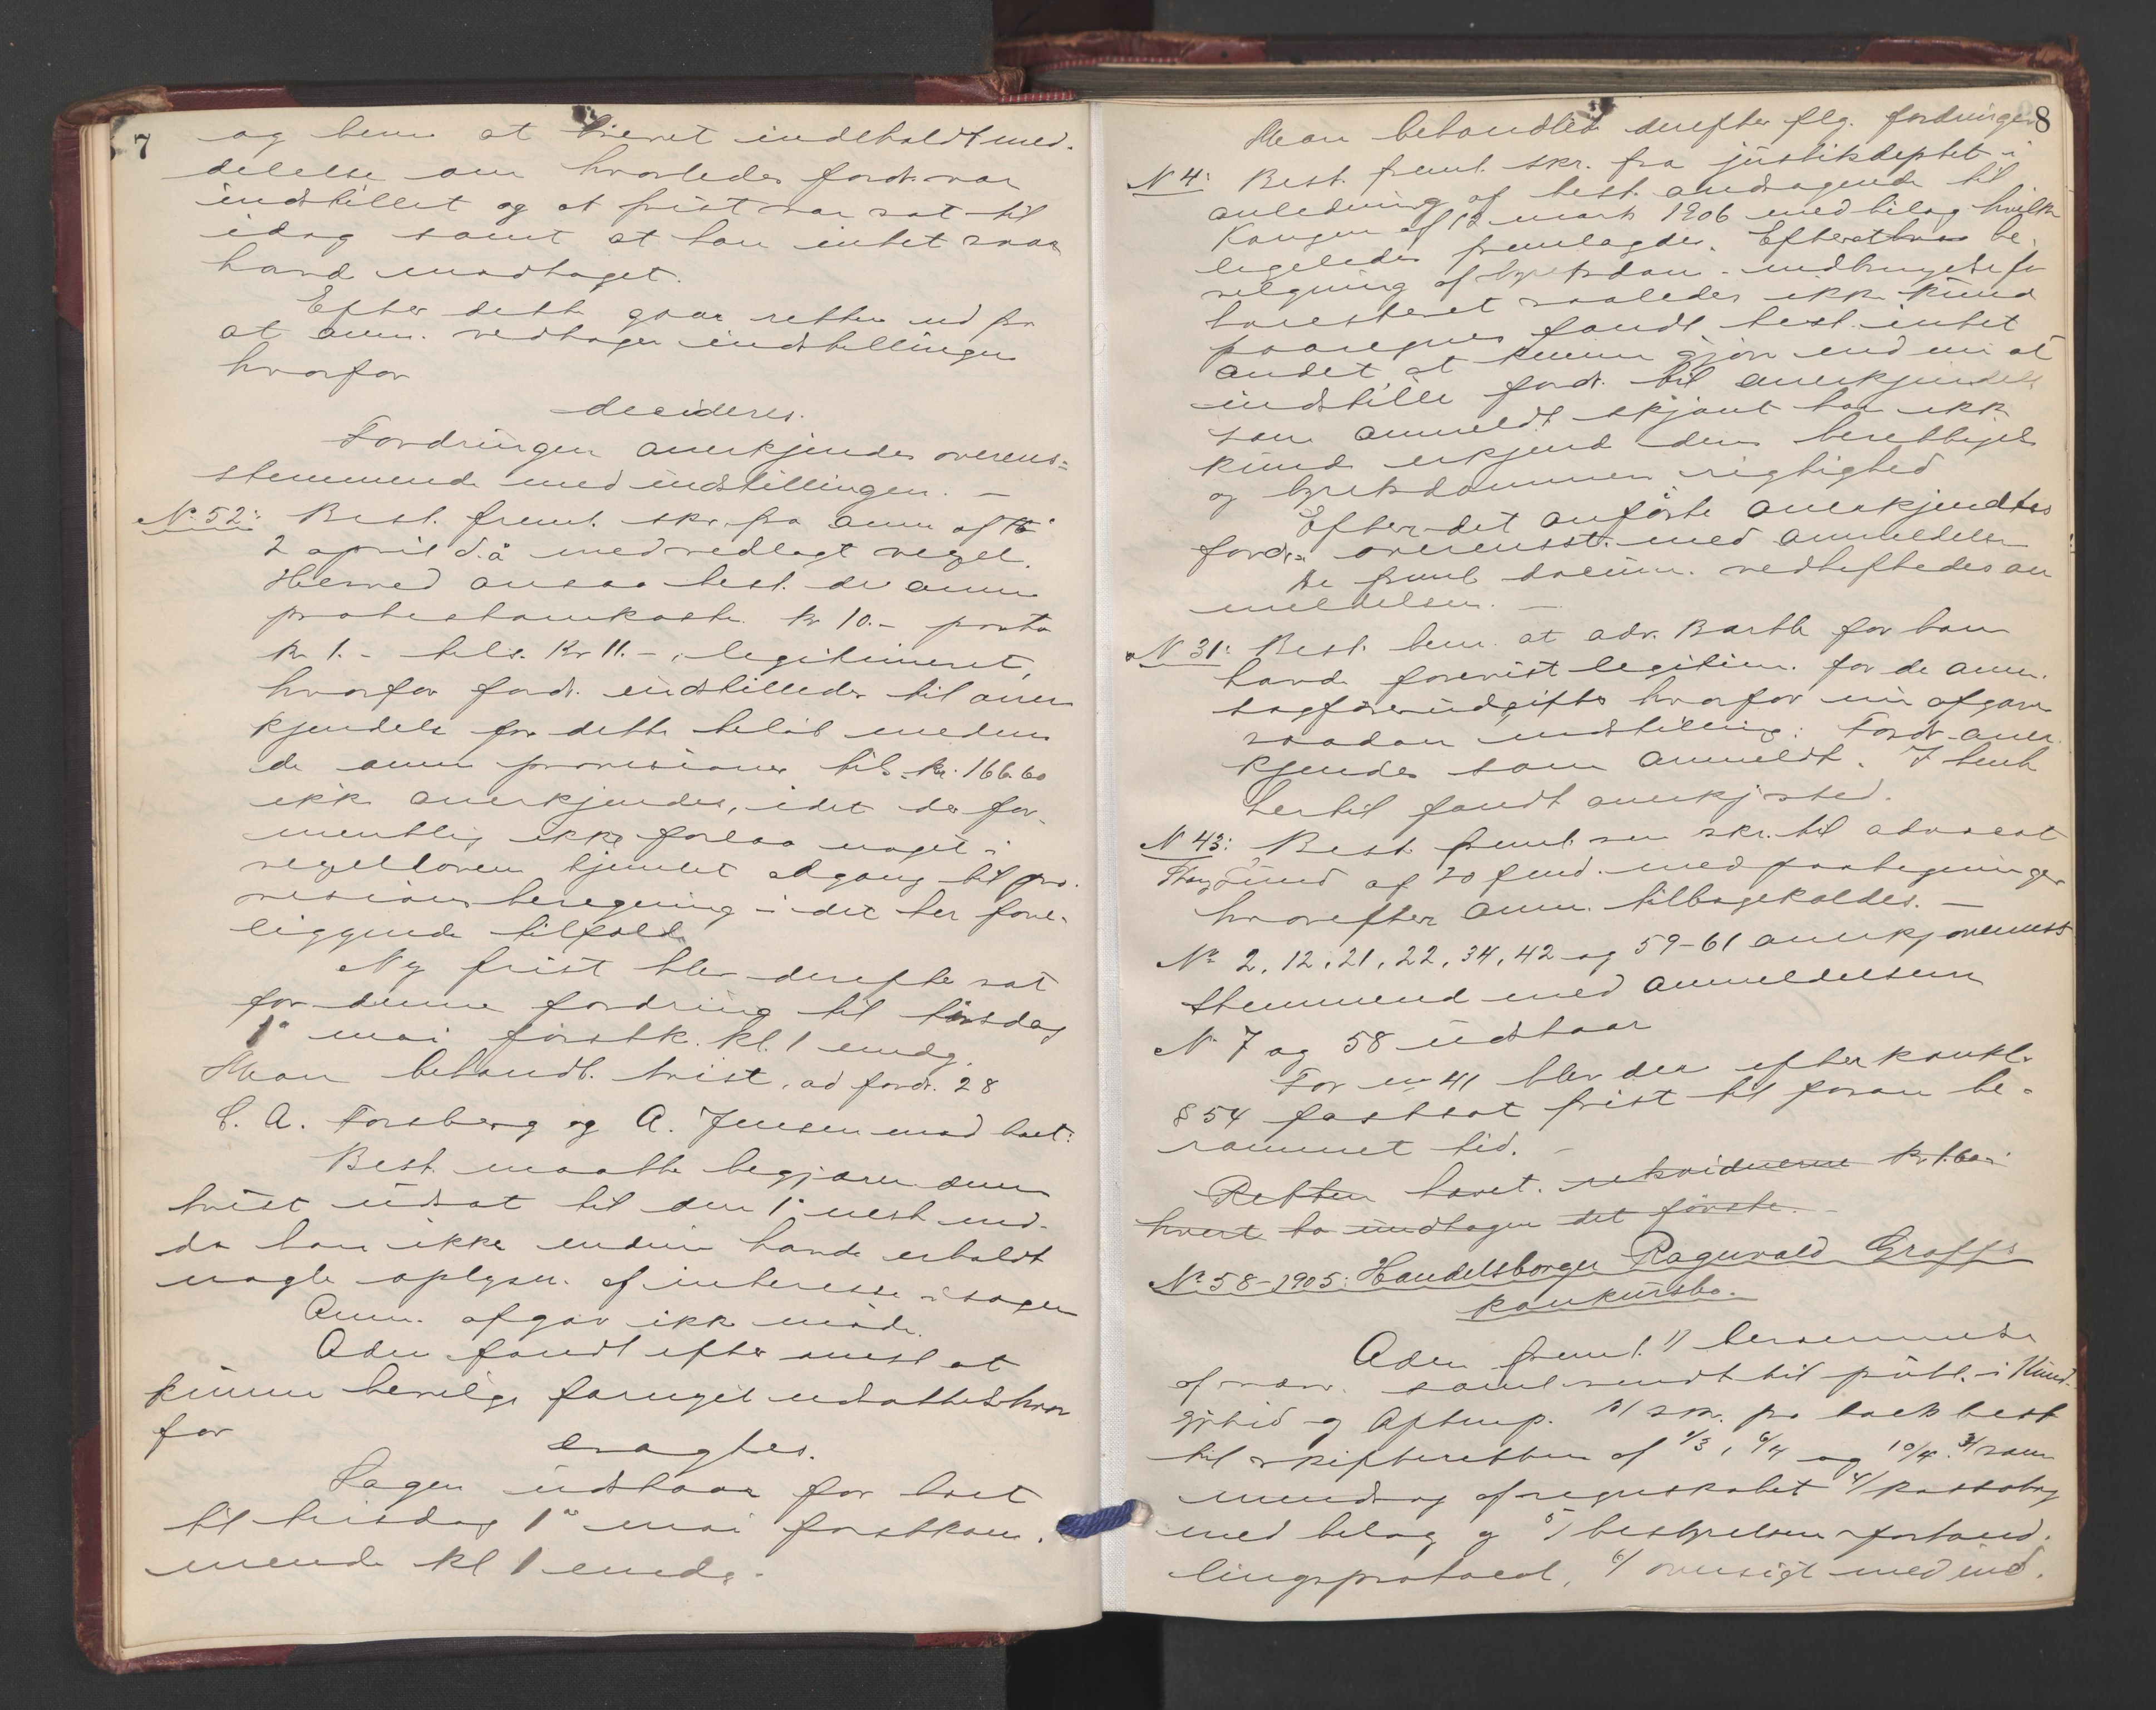 7
og bem. at brevet indeholdt med-
delelse om hvorledes fordr. var
indstillet og at frist var sat til
idag samt at han intet svar
havde modtaget.
Efter dette gaar retten ud fra
at anm. vedtager indstillingen
hvorfor
decideres.
Fordringen anerkjendes overens=
stemmende med indstillingen. —
No. 52: Best. freml. skr. fra anm. af
2 april d.å med vedlagt vexel.
Herved ansaa best. de anm.
protestomkostn. kr 10.- porto
kr 1.- tils. Kr 11.-, legitimeret,
hvorfor fordr. indstilledes til aner
kjendelse for dette beløb medens
de anm provisioner tils. kr. 166.60
ikke anerkjendes, idet der for-
mentlig ikke forelaa noget i
vexelloven hjemlet adgang til pro-
visionsberegning i det her fore-
liggende tilfælde.
Ny frist blev derefter sat
for denne fordring til tirsdag
1ste mai førstk. kl. 1 emdg.
Man behandl. tvist. ad fordr. 28
C. A. Forsberg og A. Jensen mod boet:
Best. maatte begjære denne
tvist udsat til den 1ste næst md.
da han ikke endnu havde erholdt
nogle oplysn. af interesse i sagen
Anm. afgav ikke møde.
Adm fandt efter omst at
kunne bevilge forngjet udsættelse hvor
for
eragtes.
Sagen udstaar for boet
til tirsdag 1ste mai førstkom-
mende kl 1 emdg.
8
Man behandlet derefter flg. fordringer
N 4: Best. freml. skr. fra justitsdeptet i
anledning af best. andragende til
Kongen af 12 marts 1906 med bilag hvilke
ligeledes fremlagdes. Efter be-
velgning af byretsdom - indbringelse for
høiesteret saaledes ikke kunde
paaregnes fandt best. intet
andet at kunne gjøre end nu at
indstille fordr. til anerkjendelse
som anmeldt skjønt han ikke
kunde erkjende dens berettigelse
og byretsdommens rigtighed
Efter det anførte anerkjendtes
fordr. overensst. med anmeldelsen
De freml. docum. vedheftedes an
meldelsen. —
N 31: Best. bem. at adv. Barth for ham
havde forevist legitim. for de anm.
sagførerudgifter hvorfor nu afgaves
saadan indstilling: Fordr. aner-
kjendes som anmeldt. I henh.
hertil fandt anerkj sted.
N 43: Best. freml. sin skr. til advocat
af 20 med paategninger
hvorefter anm. tilbagekaldes. —
No 2, 12, 21, 22, 34, 42 og 59-61 anerkj overenss
stemmend med anmeldelserne
N 7 og 58 udstaar
For no 41 blev der efter konkl.
§ 54 fastsat frist til foran be-
rammet tid. —
Retten hævet. rekvidererne kr 1.60
hvert bo undtagen det første. —
No 58-1905: Handelsborger Ragnvald Graffs
konkursbo.
Adm freml. 1) berammelse
af varv. samt sendt til publ. i Kund-
gjtid og Aftenp. 2) skr. fra boets best
til skifteretten af 1/3, 6/4 og 10/4. 3) sam
mendrag af regnskabet 4) kassabog
med bilag og 5) bestyrelsens forhand-
lingsprotocol, 6) oversigt med ind-